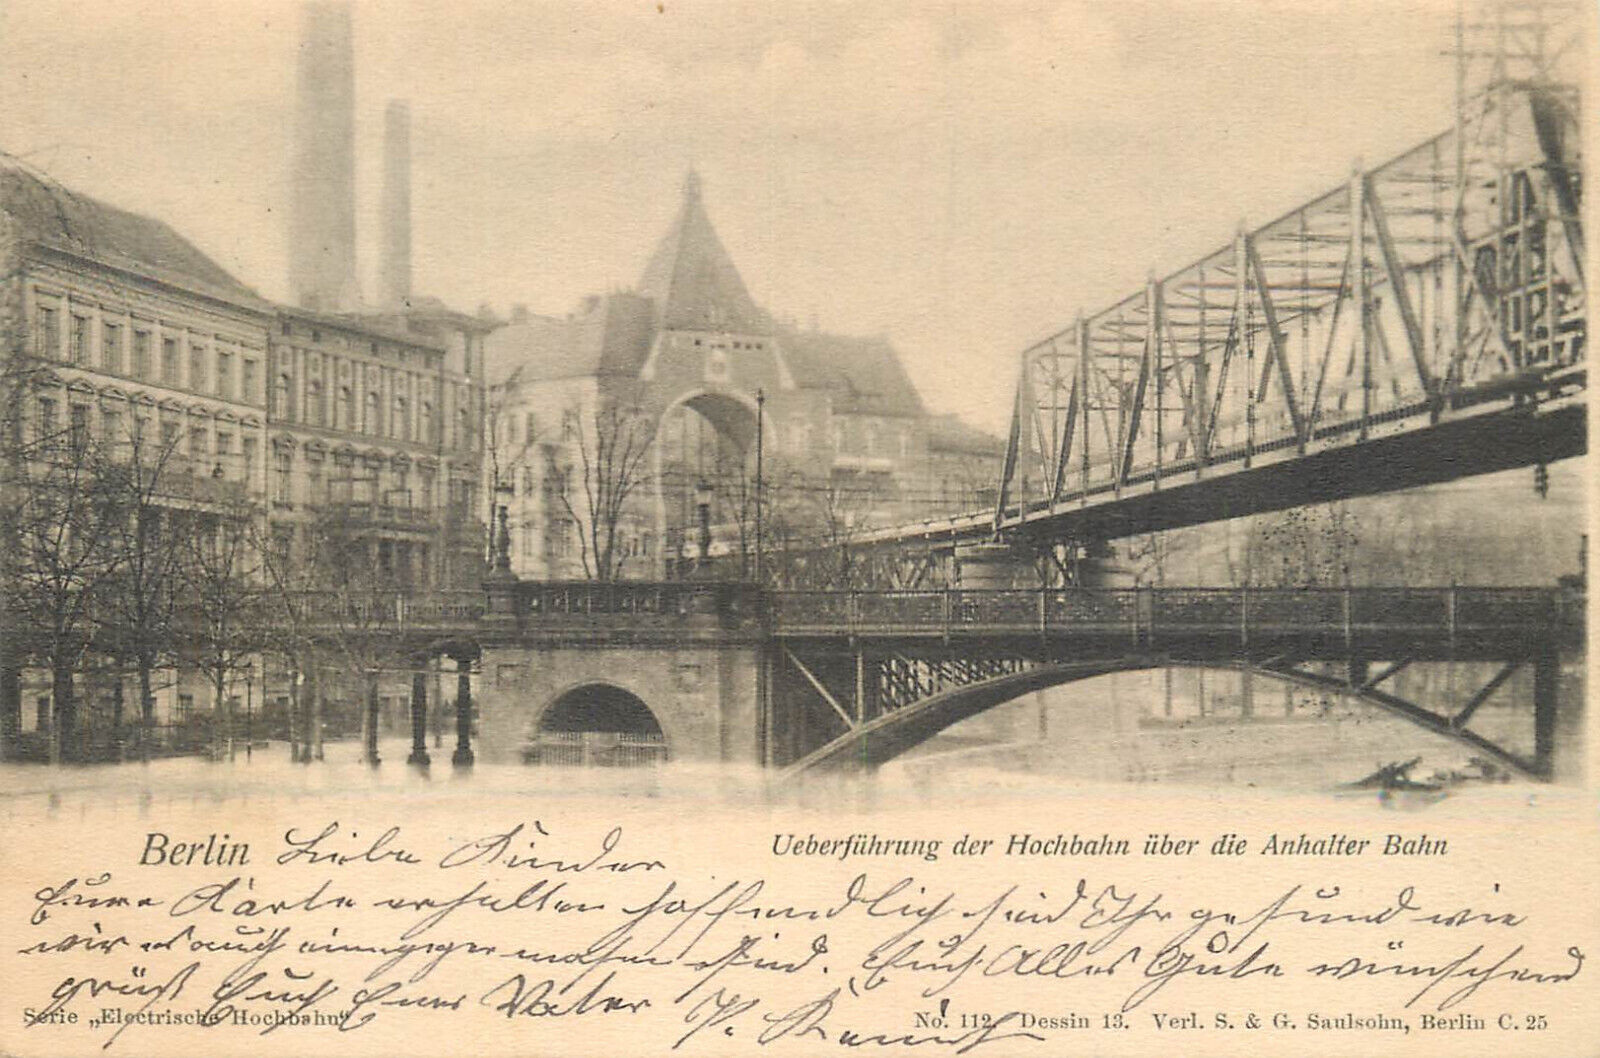 Berlin Liebe Kinder
Ueberführung der Hochbahn über die Anhalter Bahn
Eure Karte erhalten hoffendlich seid Ihr gesund wie
wir es auch einigermasen sind. Euch Alles Gute wünschend
grüßt Euch Euer Vater P.
Serie „Electrische Hochbahn“
No. 112. Dessin 13. Verl. S. & G. Saulsohn, Berlin C. 25